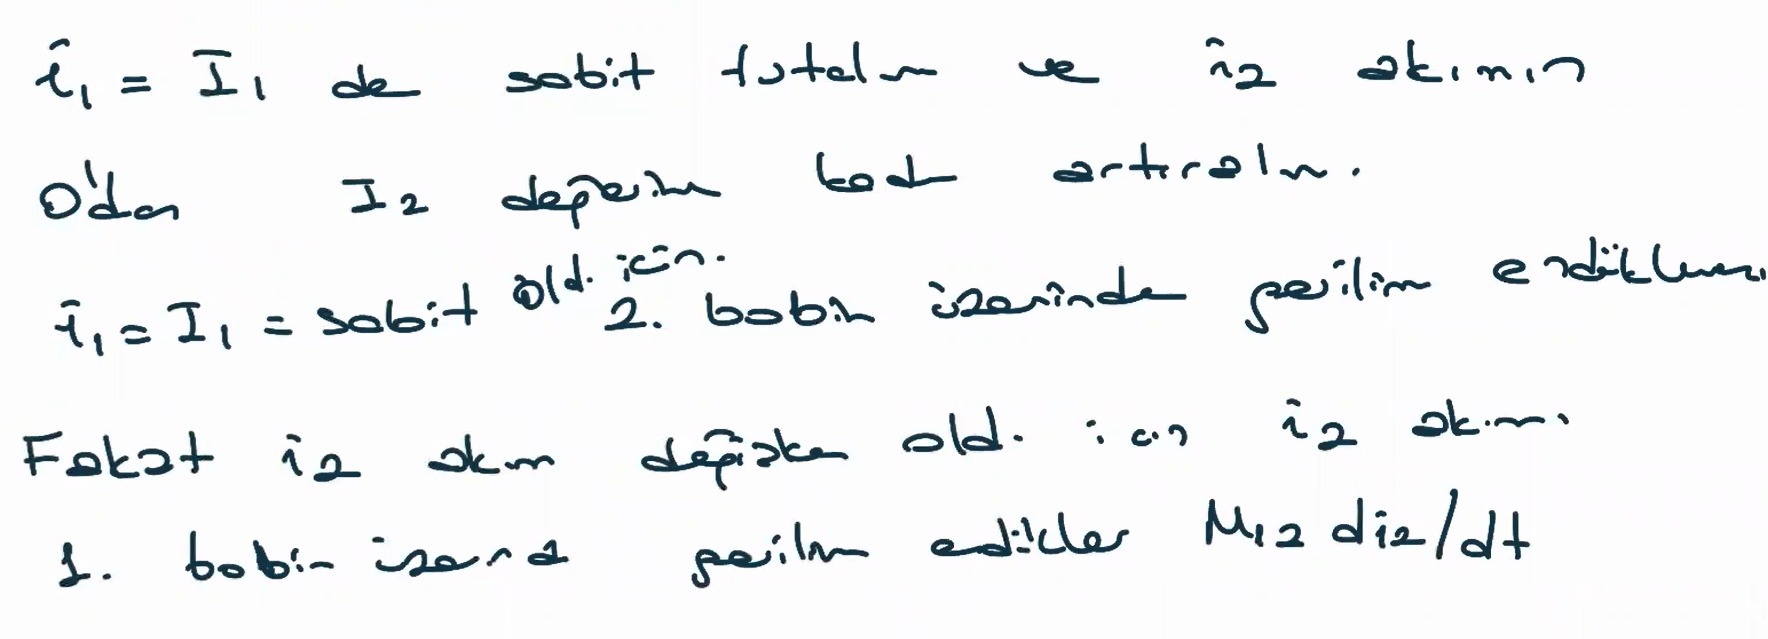 i₁ = I₁ de sabit tutalım ve i₂ akımının
0'dan I₂ değerine kadar artıralım.
i₁ = I₁ = sabit old. için. 2. bobin üzerinde gerilim endüklenmez.
Fakat i₂ akım değişken old. için i₂ akımı
1. bobin üzerinde gerilim endükler M₁₂ di₂/dt